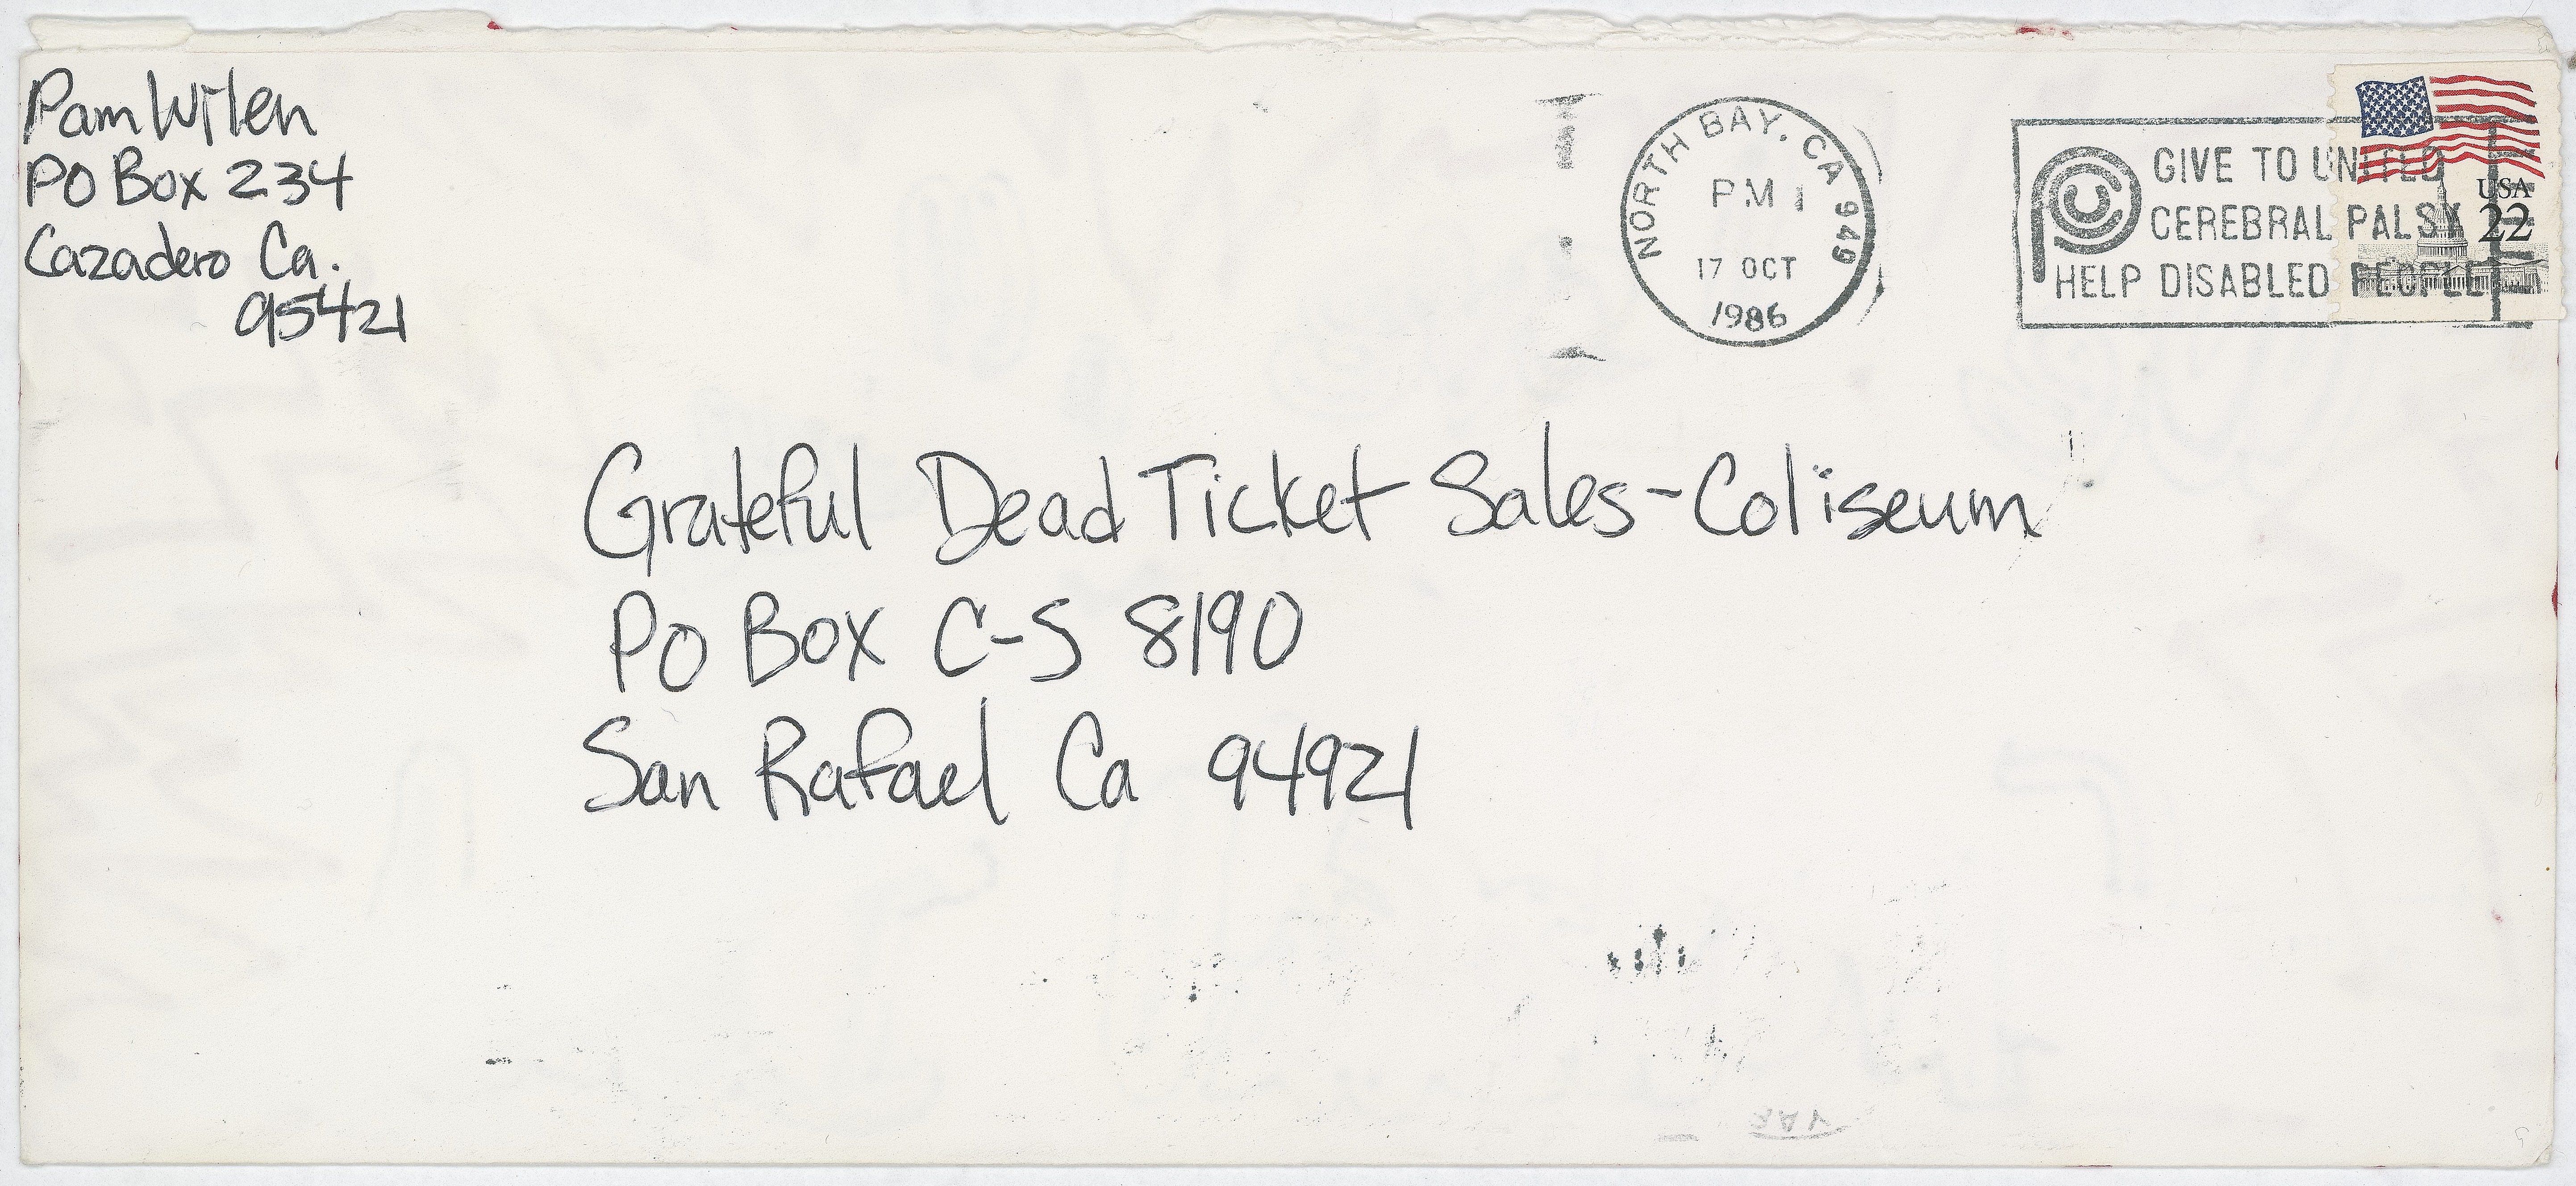 Pam Wilen
PO Box 234
Cazadero Ca.
95421
NORTH BAY, CA 949
PM
17 OCT
1986
GIVE TO UNITED
CEREBRAL PALSY
HELP DISABLED PEOPLE
USA
22
Grateful Dead Ticket Sales-Coliseum
PO Box C-S 8190
San Rafael Ca 94921